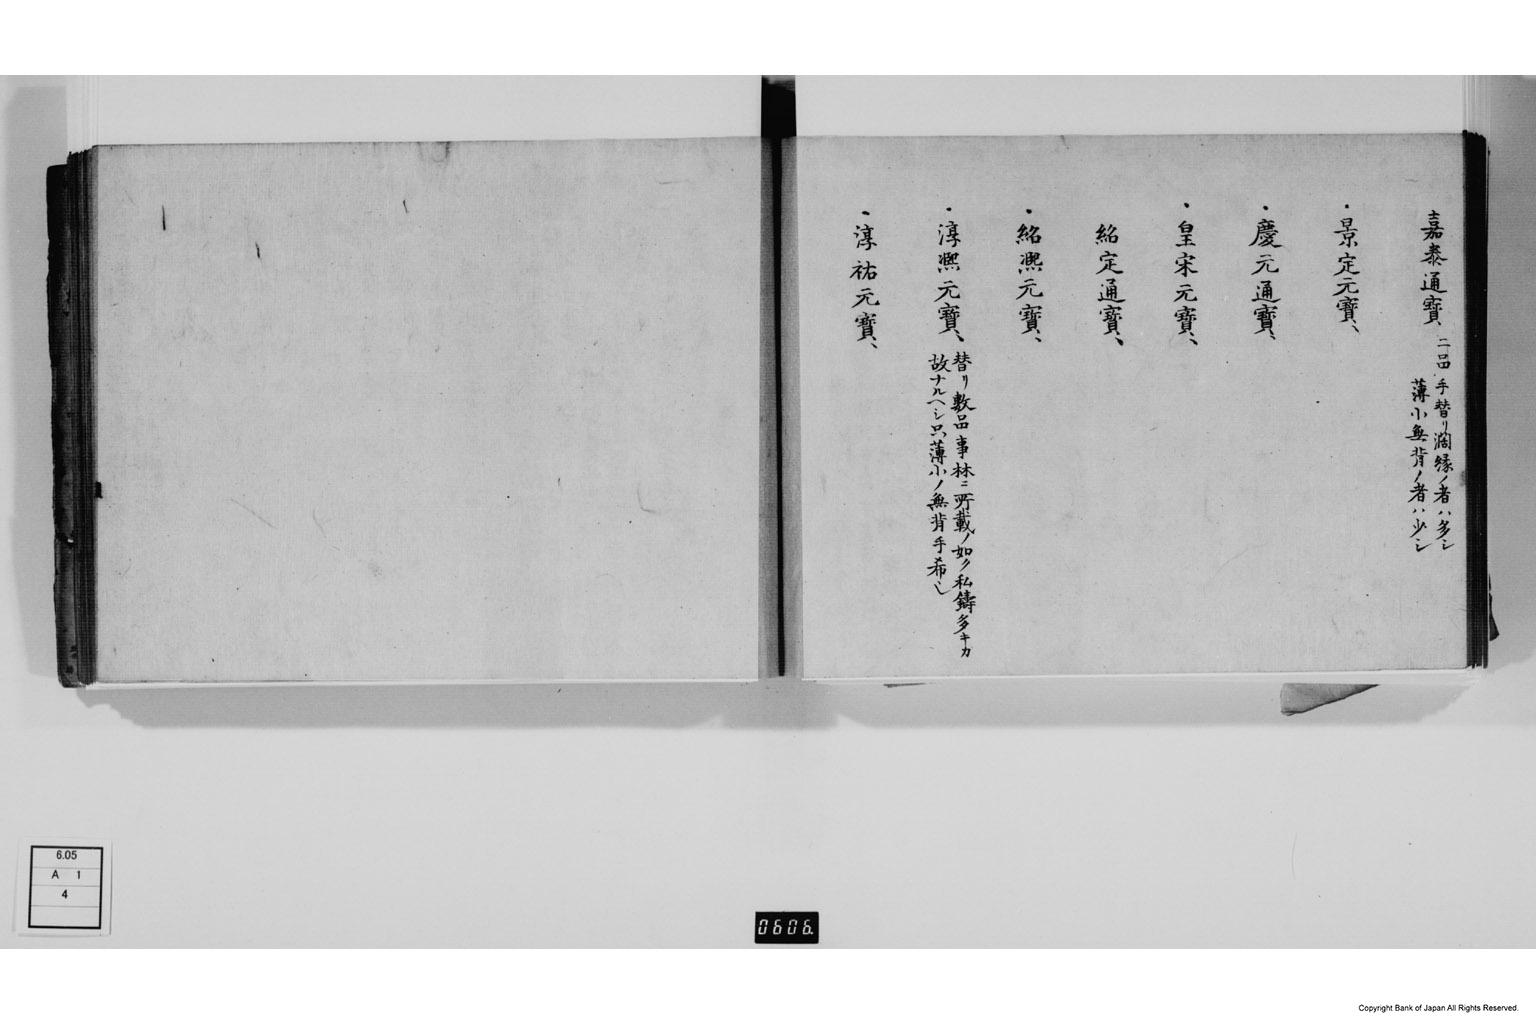 嘉泰通寳、二品手替リ濶縁ノ者ハ多シ
薄小無背ノ者ハ少シ
・景定元寳、
・慶元通寳、
・皇宋元寳、
紹定通寳、
・紹熙元寳、
・淳熙元寳、替リ數品事林ニ所載ノ如ク私鑄多キカ
故ナルヘシ只薄小ノ無背手希シ
・淳祐元寳、
6.05
A 1
4
0606.
Copyright Bank of Japan All Rights Reserved.